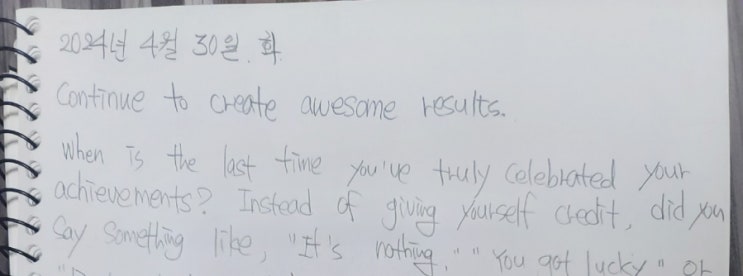 2024년 4월 30일. 화.
Continue to create awesome results.
When is the last time you've truly celebrated your
achievements? Instead of giving yourself credit, did you
say something like, "It's nothing." "You got lucky" or